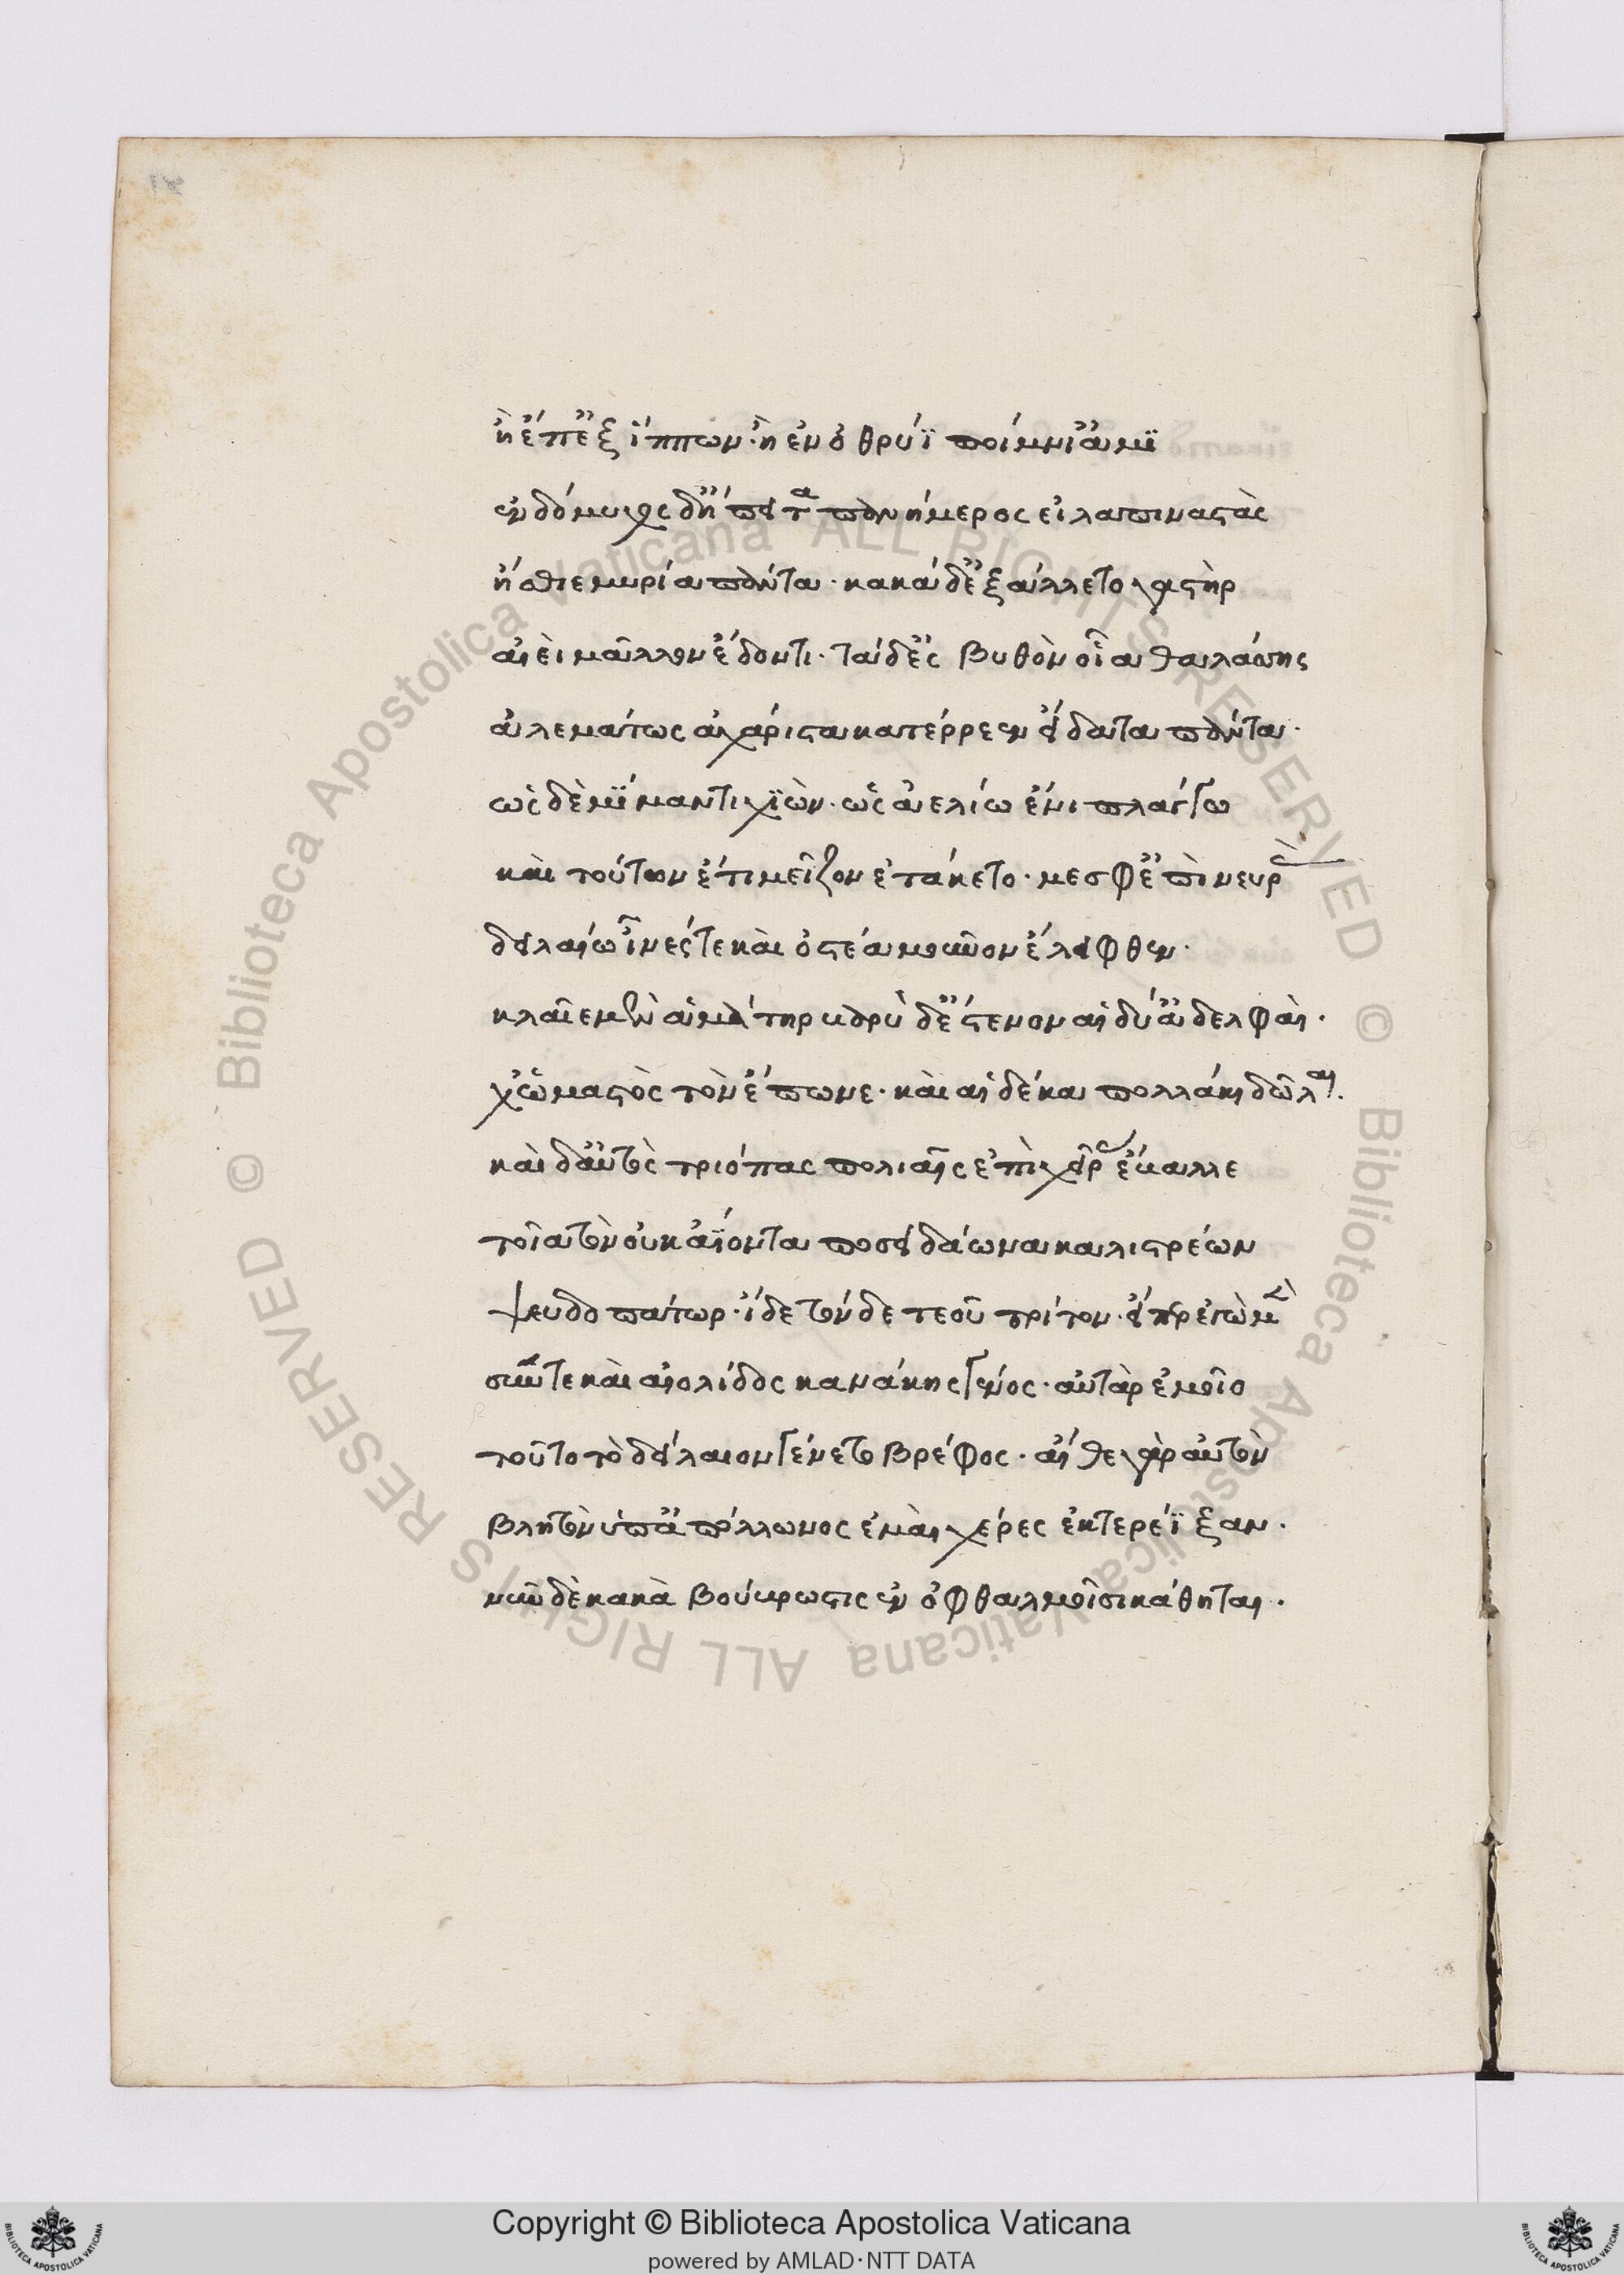 ἢ ἔπεσ' ἐξ ἵππων· ἢ ἐν ὄθρυϊ ποίμνι' ἀμιθρεῖ
ἐνδόμυχος δἤπειτα πανήμερος εἰλαπιναστὰς
ἤσθιε μυρία πάντα· κακὰ δ' ἐξάλλετο γαστὴρ
αἰεὶ μᾶλλον ἔδοντι· τὰ δ' ἐς βυθὸν οἷα θαλάσσης
ἀλεμάτως ἀχάριστα κατέρρεεν εἴδατα πάντα·
ὡς δὲ μίμαντι χιὼν· ὡς ἀελίω ἔνι πλαγγὼ
καὶ τούτων ἔτι μεῖζον ἐτάκετο· μέσφ' ἐπὶ νευρὰς
δειλαίω ἶνές τε καὶ ὀστέα μοῦνον ἔλειφθεν·
κλαῖε μὲν ἁ μάτηρ βαρὺ δ' ἔστενον αἱ δύ' ἀδελφαὶ·
χὠ μαστὸς τὸν ἔπωνε· καὶ αἱ δέκα πολλάκι δῶλαι·
καὶ δ' αὐτὸς τριόπας πολιαῖς ἐπὶ χεῖρας ἔβαλλε
τοῖα τὸν οὐκ ἀΐοντα ποσειδάωνα καλιστρέων
ψευδοπάτωρ· ἴδε τόνδε τεοῦ τρίτον· εἴπερ ἐγὼ μὲν
σεῦ τε καὶ αἰολίδος κανάκης γένος· αὐτὰρ ἐμοῖο
τοῦτο τὸ δείλαιον γένετο βρέφος· αἴθε γὰρ αὐτὸν
βλητὸν ὑπ' ἀπόλλωνος ἐμαὶ χέρες ἐκτερέϊξαν·
νῦν δὲ κακὰ βούβρωστις ἐν ὀφθαλμοῖσι κάθηται·
Copyright © Biblioteca Apostolica Vaticana
powered by AMLAD·NTT DATA